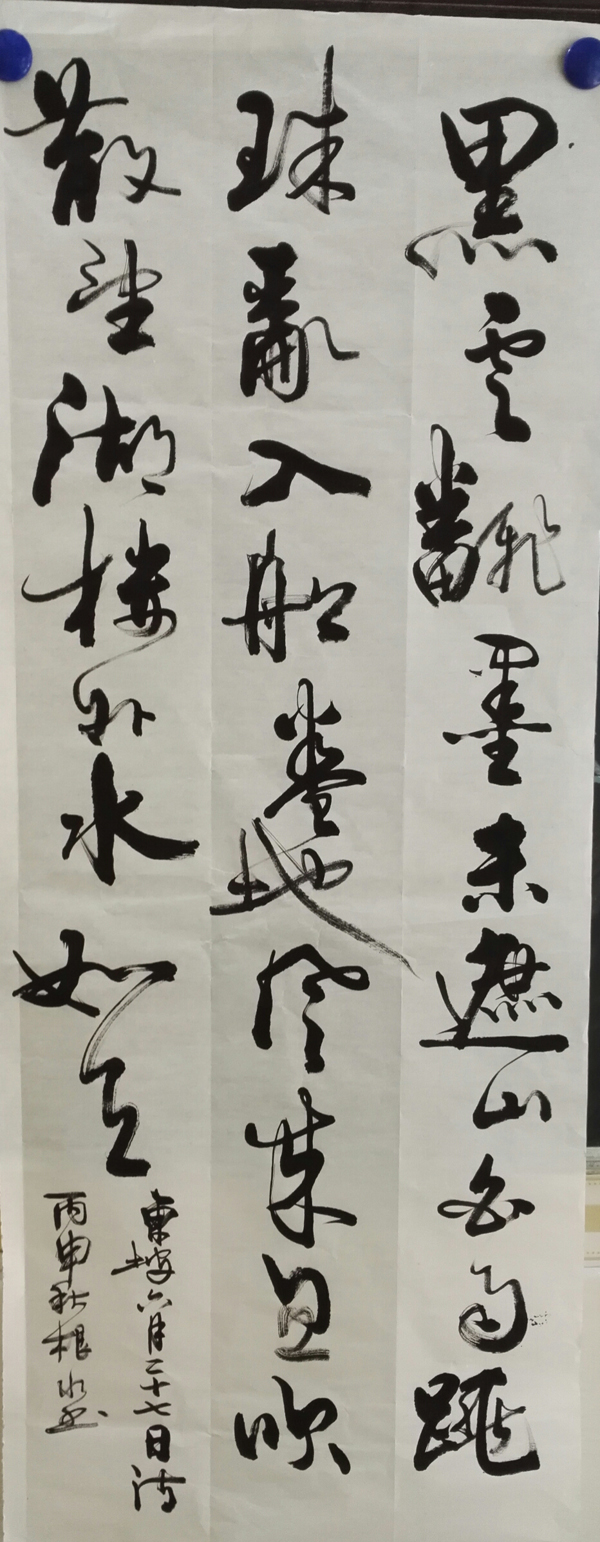 黑雲飜墨未遮山白雨跳
珠亂入船卷地風來忽吹
散望湖樓外水如天
東坡六月二十七日詩
丙申秋根水书